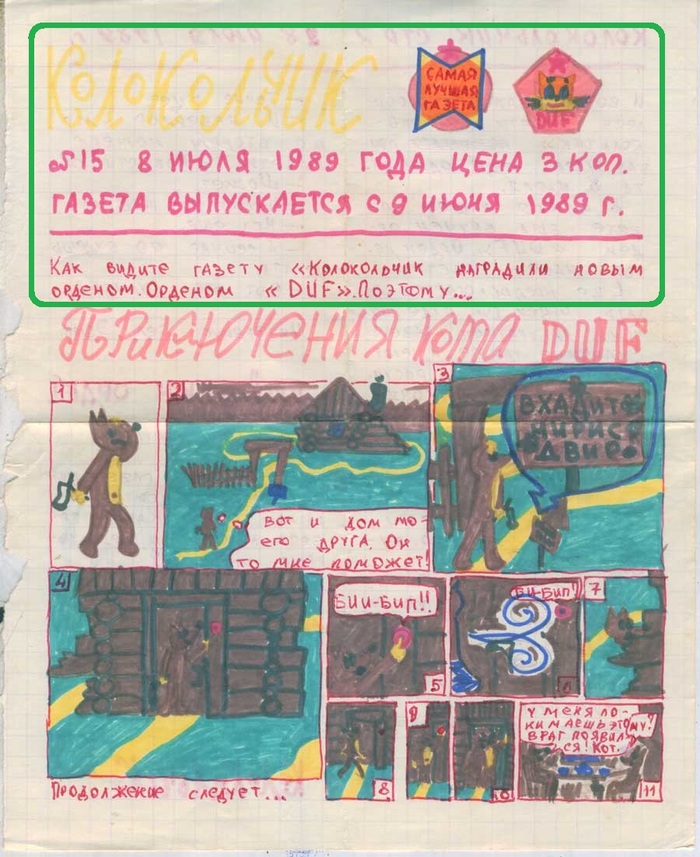 КОЛОКОЛЬЧИК
САМАЯ
ЛУЧШАЯ
ГАЗЕТА
DUF
№15 8 ИЮЛЯ 1989 ГОДА ЦЕНА 3 КОП.
ГАЗЕТА ВЫПУСКАЕТСЯ С 9 ИЮНЯ 1989 Г.
КАК ВИДИТЕ ГАЗЕТУ «КОЛОКОЛЬЧИК НАГРАДИЛИ НОВЫМ
ОРДЕНОМ. ОРДЕНОМ «DUF». ПОЭТОМУ...
ПРИКЛЮЧЕНИЯ КОТА DUF
1
2
ВОТ И ДОМ МО-
ЕГО ДРУГА. ОН
ТО МНЕ ПОМОЖЕТ!
3
ВХАДИТЕ
ЧИРИС
ДВИР
4
БИИ-БИП!!
5
БИ-БИП!
6
7
8
9
10
У МЕНЯ ПО-
НИМАЕШЬ ЭТОМУ?
ВРАГ ПОЯВИЛ-
СЯ! КОТ.
11
ПРОДОЛЖЕНИЕ СЛЕДУЕТ...